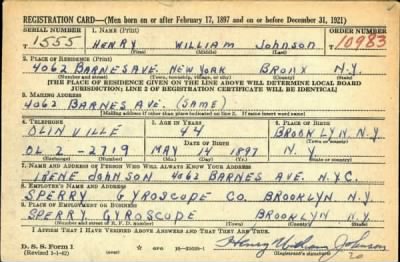 REGISTRATION CARD—(Men born on or after February 17, 1897 and on or before December 31, 1921)
SERIAL NUMBER 1. NAME (Print) ORDER NUMBER
T 1555 HENRY WILLIAM Johnson T10983
(First) (Middle) (Last)
2. PLACE OF RESIDENCE (Print)
4062 BARNES AVE. NEW YORK BRONX N.Y.
(Number and street) (Town, township, village, or city) (County) (State)
[THE PLACE OF RESIDENCE GIVEN ON THE LINE ABOVE WILL DETERMINE LOCAL BOARD
JURISDICTION; LINE 2 OF REGISTRATION CERTIFICATE WILL BE IDENTICAL]
3. MAILING ADDRESS
4062 BARNES AVE. (SAME)
[Mailing address if other than place indicated on line 2. If same insert word same]
4. TELEPHONE 5. AGE IN YEARS 6. PLACE OF BIRTH
OLINVILLE 44 BROOKLYN. N.Y
DATE OF BIRTH (Town or county)
OL 2 - 2719 MAY 14 1897 N.Y
(Exchange) (Number) (Mo.) (Day) (Yr.) (State or country)
7. NAME AND ADDRESS OF PERSON WHO WILL ALWAYS KNOW YOUR ADDRESS
IRENE JOHNSON 4062 BARNES AVE. N.Y.C.
8. EMPLOYER'S NAME AND ADDRESS
SPERRY GYROSCOPE CO. BROOKLYN N.Y.
9. PLACE OF EMPLOYMENT OR BUSINESS
SPERRY GYROSCOPE BROOKLYN N.Y.
(Number and street or R. F. D. number) (Town) (County) (State)
I AFFIRM THAT I HAVE VERIFIED ABOVE ANSWERS AND THAT THEY ARE TRUE.
D. S. S. Form 1
(Revised 1-1-42) (over)
Henry William Johnson
(Registrant's signature)